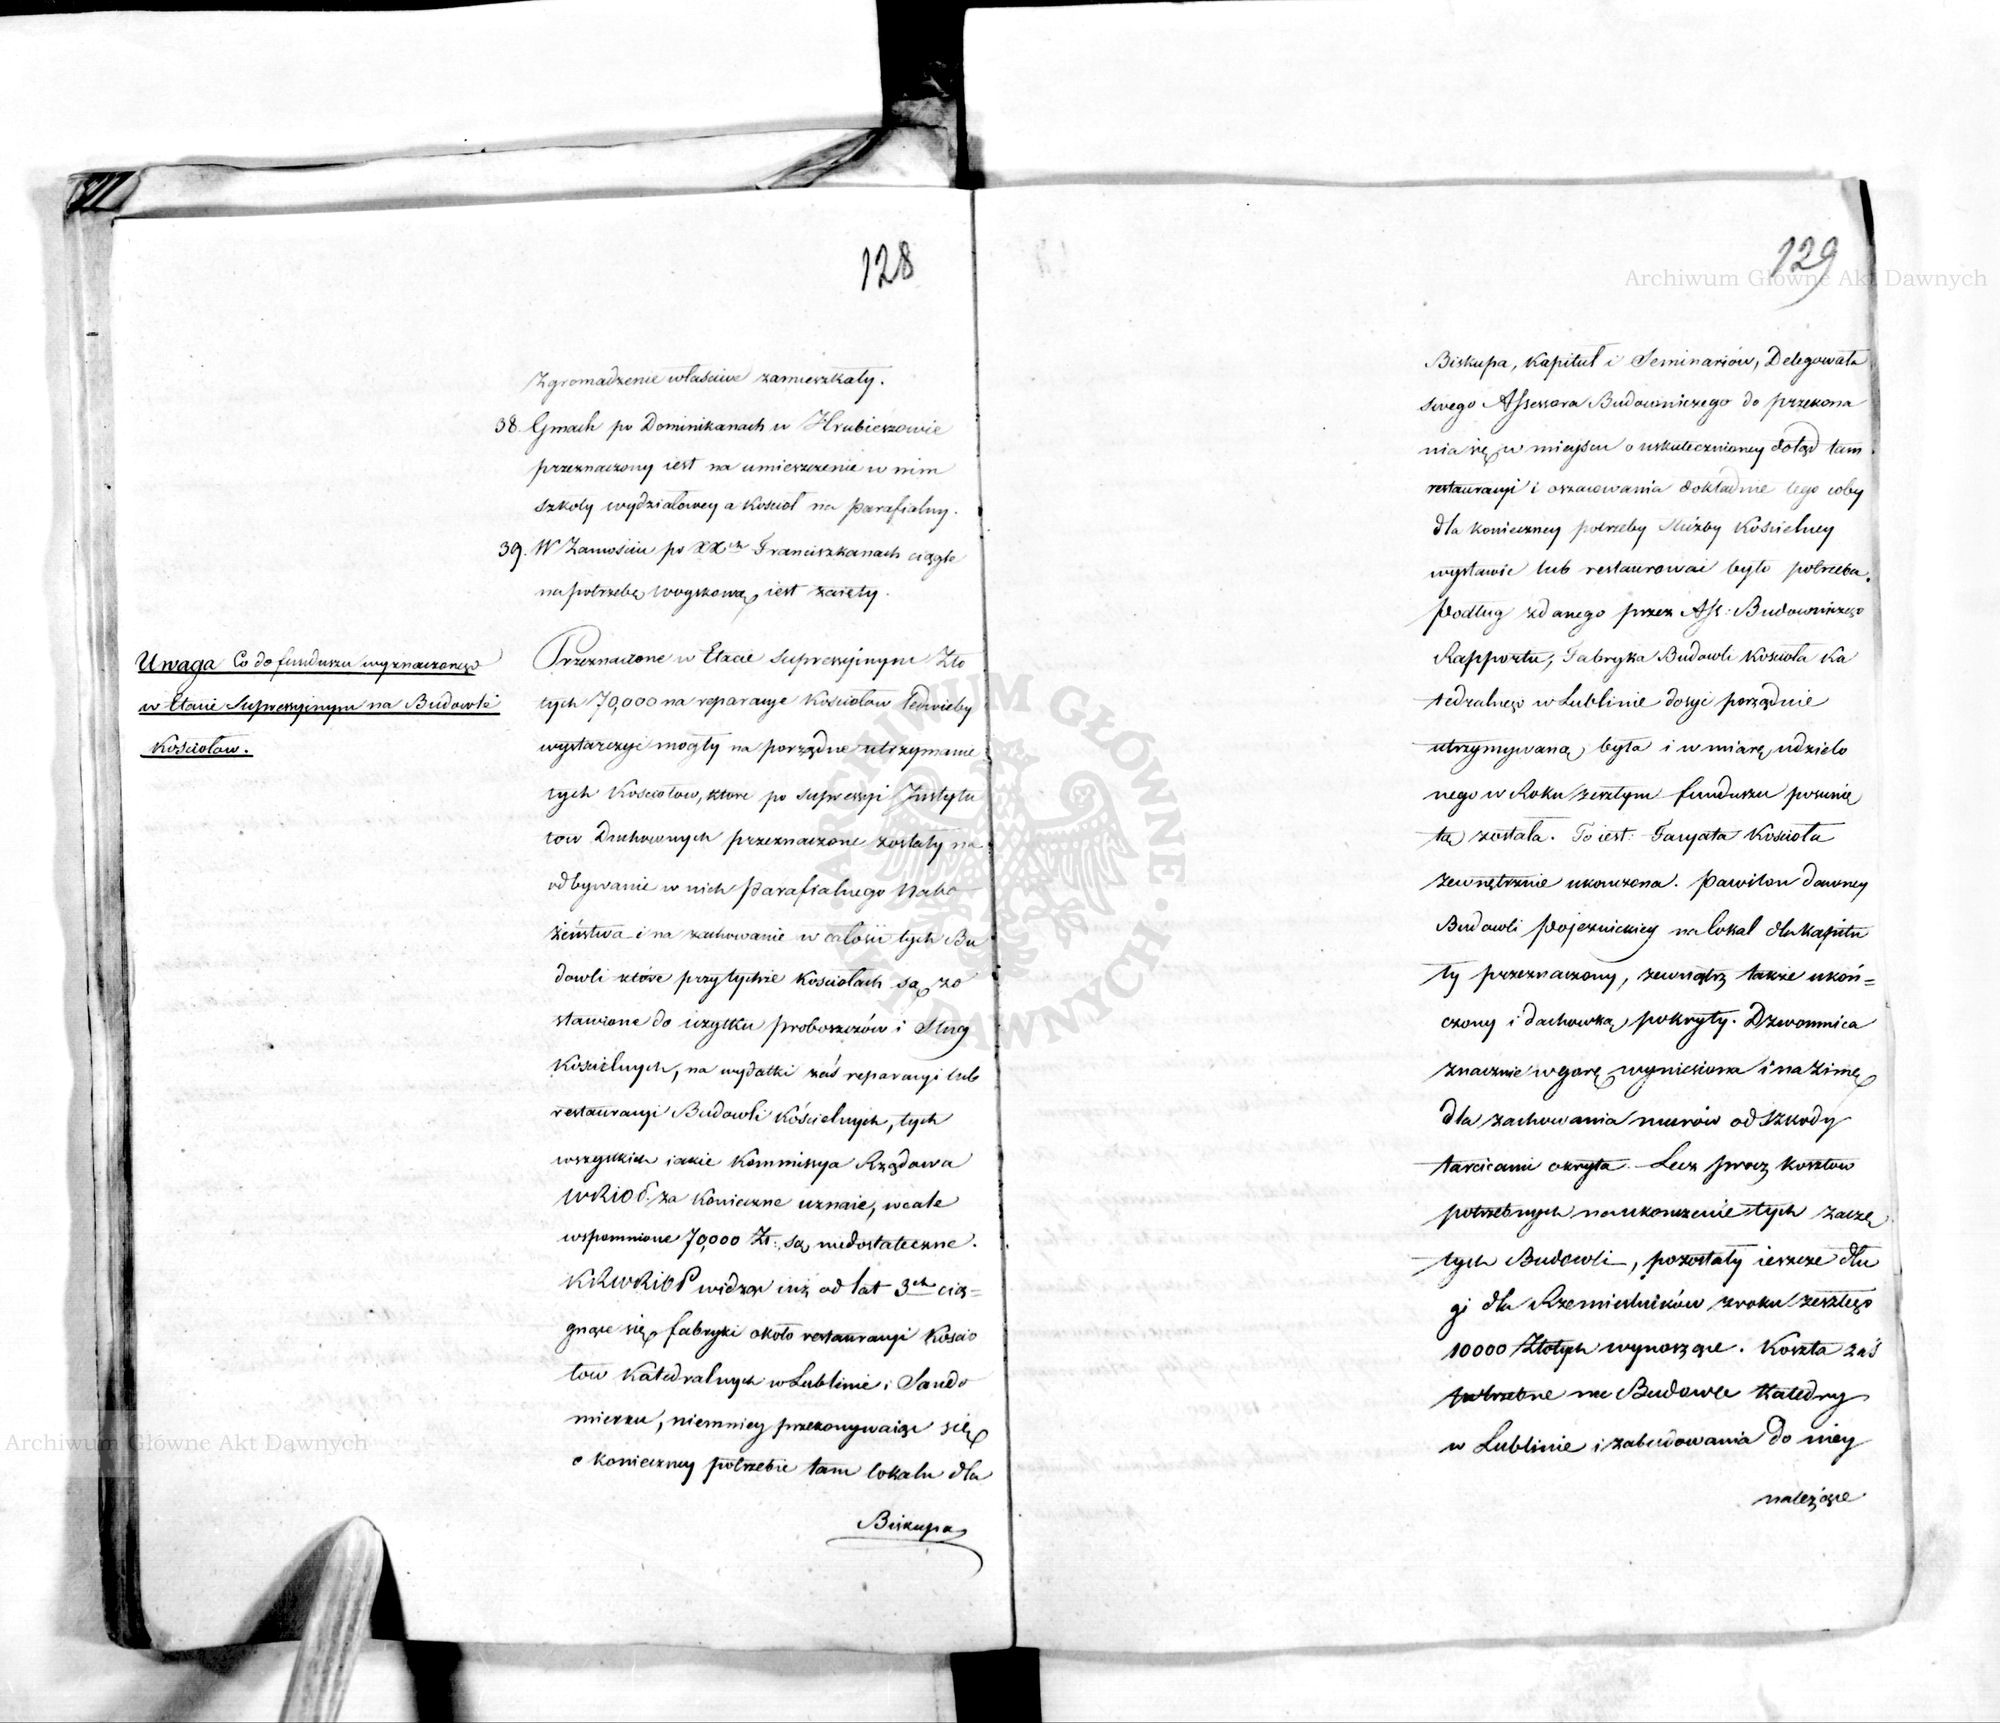 128
Zgromadzenie właściwe zamieszkały.
38. Gmach po Dominikanach w Hrubieszowie
przeznaczony iest na umieszczenie w nim
szkoły wydziałowey a Kościoł na parafialny.
39. W Zamościu po XX. Franciszkanach ciągle
na potrzebę woyskową iest zaięty.
Uwaga Co do funduszu wyznaczonego
w Etacie Supressyinym na Budowle
Kościołow.
Przeznaczone w Etacie supressyinym Zło
tych 70,000 na reparacye Kościołow ledwieby
wystarczyć mogły na porządne utrzymanie
tych Kościołow, ktore po supressyi Instytu
tow Duchownych przeznaczone zostały na
odbywanie w nich parafialnego Nabo
żeństwa i na zachowanie w całości tych Bu
dowli które przy tychże Kościołach są zo
stawione do użytku proboszczów i Sług
Kościelnych, na wydatki zaś reparacyi lub
restauracyi Budowli Kościelnych, tych
wszystkich iakie Kommissya Rządowa
WRiOP. za Konieczne uznaie, wcale
wspomnione 70,000 Zł: są niedostateczne.
KRWRiOP widząc iuż od lat 3ch cią=
gnące się fabryki około restauracyi Kościo
łow Katedralnych w Lublinie i Sando
mierzu, niemniey przekonywaiąc się
o konieczney potrzebie tam lokalu dla
Biskupa
129
Biskupa, Kapituł i Seminariów, Delegowała
swego Assessora Budowniczego do przekona
nia się w mieyscu o uskutecznioney dotąd tam
restauracyi i oszacowania dokładnie tego coby
dla konieczney potrzeby Służby Kościelney
wystawić lub restaurować było potrzeba.
Podług zdanego przez Ass: Budowniczego
Rapportu, Fabryka Budowli Kościoła Ka
tedralnego w Lublinie dosyć porządnie
utrzymywaną była i w miarę udzielo
nego w Roku zeszłym funduszu posunię
tą została. To iest: Facyata Kościoła
zewnętrznie ukończona. Pawilon dawney
Budowli Pojezuickiey na lokal dla Kapitu
ły przeznaczony, zewnątrz także ukoń=
czony i dachowką pokryty. Dzwonnica
znacznie w gorę wyniesiona i na zimę
dla zachowania murów od szkody
tarcicami okryta. Lecz procz kosztow
potrzebnych na ukończenie tych zaczę
tych Budowli, pozostały ieszcze dłu
gi dla Rzemieślników z roku zeszłego
10000 Złotych wynoszące. Koszta zaś
potrzebne na Budowle Katedry
w Lublinie i zabudowania do niey
należące
ARCHIWUM GŁÓWNE AKT DAWNYCH
Archiwum Główne Akt Dawnych
Archiwum Główne Akt Dawnych